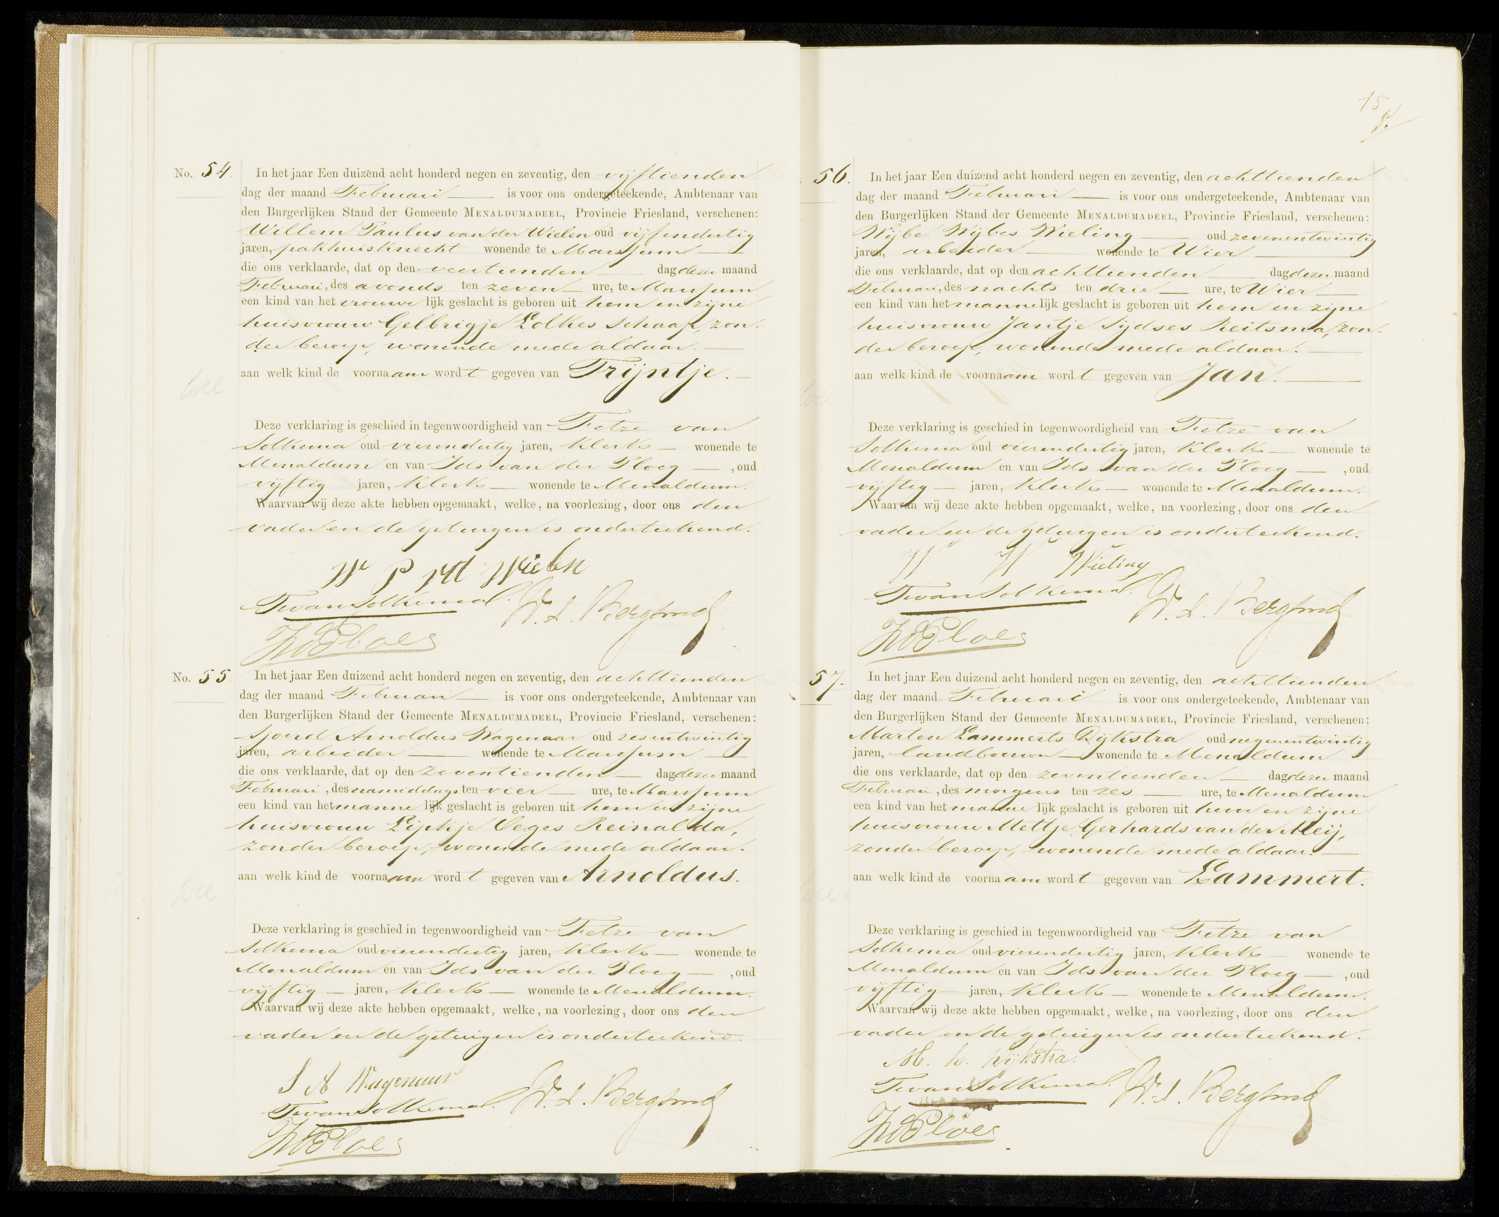 No. 54
In het jaar Een duizend acht honderd negen en zeventig, den vijftienden
dag der maand Februari — is voor ons ondergeteekende, Ambtenaar van
den Burgerlijken Stand der Gemeente MENALDUMADEEL, Provincie Friesland, verschenen:
Willem Paulus van der Wielen oud vijfendertig
jaren, pakhuisknecht wonende te Marssum —
die ons verklaarde, dat op den veertienden — dag dezer maand
Februari, des avonds ten zeven — ure, te Marssum
een kind van het vrouwe lijk geslacht is geboren uit hem en zijne
huisvrouw Gelbrigje Lolkes Schaaf, zon-
der beroep, wonende mede aldaar. —
aan welk kind de voornaam wordt gegeven van Trijntje. —
Deze verklaring is geschied in tegenwoordigheid van Fetze van
Solkema oud vierendertig jaren, Klerk — wonende te
Menaldum en van Ids van der Ploeg — , oud
vijftig jaren, Klerk — wonende te Menaldum.
Waarvan wij deze akte hebben opgemaakt, welke, na voorlezing, door ons den
vader en de getuigen is onderteekend.
W P vd Wielen
F van Solkema. W. S. Bergsma
I v d Ploeg
No. 55
In het jaar Een duizend acht honderd negen en zeventig, den achttienden
dag der maand Februari — is voor ons ondergeteekende, Ambtenaar van
den Burgerlijken Stand der Gemeente MENALDUMADEEL, Provincie Friesland, verschenen:
Sjoerd Arnoldus Wagenaar oud zesentwintig
jaren, arbeider — wonende te Marssum —
die ons verklaarde, dat op den zeventienden — dag dezer maand
Februari, des namiddags ten vier — ure, te Marssum
een kind van het manne lijk geslacht is geboren uit hem en zijne
huisvrouw Lijpkje Oeges Reinalda,
zonder beroep, wonende mede aldaar.
aan welk kind de voornaam wordt gegeven van Arnoldus.
Deze verklaring is geschied in tegenwoordigheid van Fetze van
Solkema oud vierendertig jaren, Klerk — wonende te
Menaldum en van Ids van der Ploeg — , oud
vijftig — jaren, Klerk — wonende te Menaldum.
Waarvan wij deze akte hebben opgemaakt, welke, na voorlezing, door ons den
vader en de getuigen is onderteekend.
S A Wagenaar
F van Solkema. W. S. Bergsma
I v d Ploeg
15
56.
In het jaar Een duizend acht honderd negen en zeventig, den achttienden
dag der maand Februari — is voor ons ondergeteekende, Ambtenaar van
den Burgerlijken Stand der Gemeente MENALDUMADEEL, Provincie Friesland, verschenen:
Wijbe Wijbes Wieling — oud zevenentwintig
jaren, arbeider — wonende te Wier —
die ons verklaarde, dat op den achttienden — dag dezer maand
Februari, des nachts ten drie — ure, te Wier —
een kind van het manne lijk geslacht is geboren uit hem en zijne
huisvrouw Jantje Sijdses Reitsma, zon-
der beroep, wonende mede aldaar. —
aan welk kind de voornaam wordt gegeven van Jan. —
Deze verklaring is geschied in tegenwoordigheid van Fetze van
Solkema oud vierendertig jaren, Klerk — wonende te
Menaldum en van Ids van der Ploeg — , oud
vijftig — jaren, Klerk — wonende te Menaldum.
Waarvan wij deze akte hebben opgemaakt, welke, na voorlezing, door ons den
vader en de getuigen is onderteekend.
W W Wieling
F van Solkema. W. S. Bergsma
I v d Ploeg
57.
In het jaar Een duizend acht honderd negen en zeventig, den achttienden
dag der maand Februari — is voor ons ondergeteekende, Ambtenaar van
den Burgerlijken Stand der Gemeente MENALDUMADEEL, Provincie Friesland, verschenen:
Marten Lammerts Dijkstra oud negenentwintig
jaren, landbouwer — wonende te Menaldum —
die ons verklaarde, dat op den zeventienden — dag dezer maand
Februari, des morgens ten zes — ure, te Menaldum
een kind van het manne lijk geslacht is geboren uit hem en zijne
huisvrouw Mettje Gerhards van der Meij,
zonder beroep, wonende mede aldaar. —
aan welk kind de voornaam wordt gegeven van Lammert.
Deze verklaring is geschied in tegenwoordigheid van Fetze van
Solkema oud vierendertig jaren, Klerk — wonende te
Menaldum en van Ids van der Ploeg — , oud
vijftig — jaren, Klerk — wonende te Menaldum.
Waarvan wij deze akte hebben opgemaakt, welke, na voorlezing, door ons den
vader en de getuigen is onderteekend.
M. L. Dijkstra
F van Solkema. W. S. Bergsma
I v d Ploeg